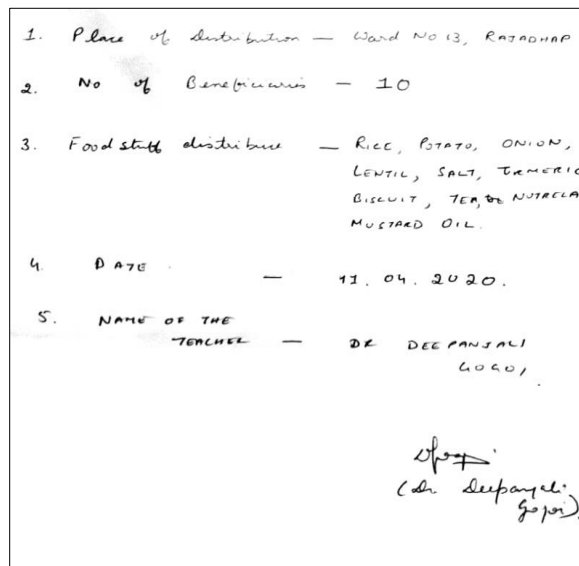 1. Place of Distribution — Ward No 13, RAJADHAP
2. No of Beneficiaries — 10
3. Foodstuff distribure — RICE, POTATO, ONION,
LENTIL, SALT, TRMERIC
BISCUIT, TEA, NUTRELA
MUSTARD OIL.
4. DATE — 11.04.2020.
5. NAME OF THE
TEACHER — DR DEEPANJALI
GOGOI
(Dr. Deepanjali
Gogoi)